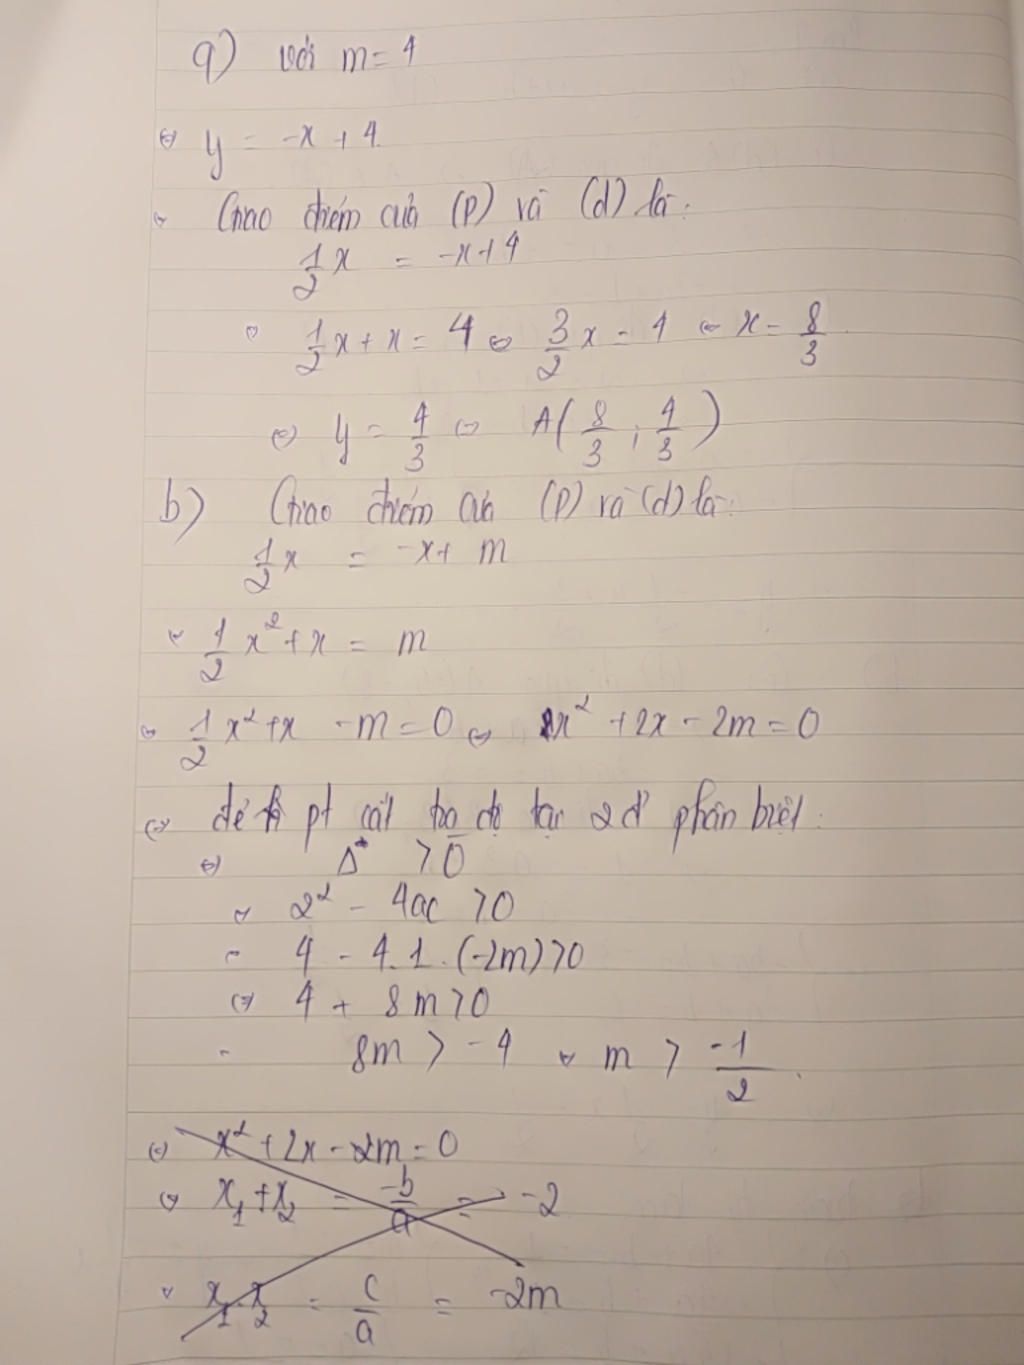 a) với m = 4
⇔ y = -x + 4
⇔ Giao điểm của (P) và (d) là:
1/2 x = -x + 4
⇔ 1/2 x + x = 4 ⇔ 3/2 x = 4 ⇔ x = 8/3
⇔ y = 4/3 ⇔ A(8/3 ; 4/3)
b) Giao điểm của (P) và (d) là:
1/2 x = -x + m
⇔ 1/2 x² + x = m
⇔ 1/2 x² + x - m = 0 ⇔ x² + 2x - 2m = 0
⇔ để pt cắt tại 2 đ' phân biệt:
⇔ Δ > 0
⇔ 2² - 4ac > 0
⇔ 4 - 4.1.(-2m) > 0
⇔ 4 + 8m > 0
8m > -4 ⇔ m > -1/2.
⇔ x² + 2x - 2m = 0
⇔ x₁ + x₂ = -b/a = -2
⇔ x₁.x₂ = c/a = -2m